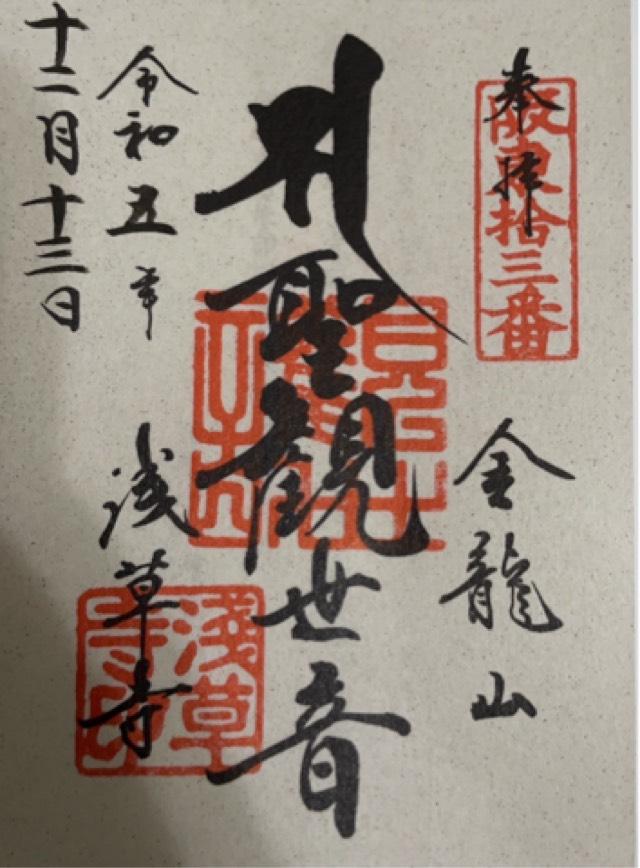 奉拝
阪東拾三番
金龍山
聖觀世音
浅草寺
淺草寺印
令和五年
十二月十三日